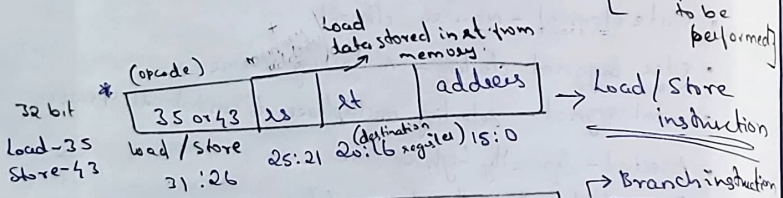 to be
performed]
Load
data stored in rt from
memory.
(opcode)
* 35 or 43 rs rt address → Load/Store
instruction
32 bit
Load-35
Store-43
Load/Store
31:26
25:21
20:16
(destination
register)
15:0
→ Branch instruction